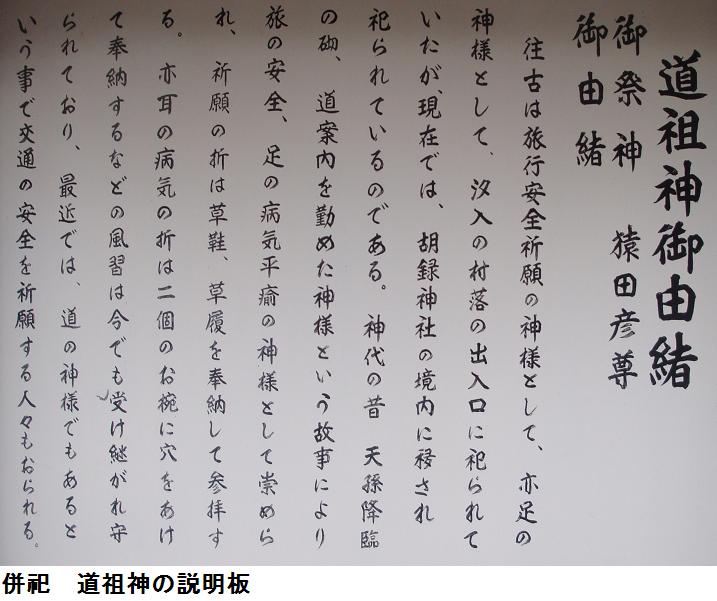 道祖神御由緒
御祭神　猿田彦尊
御由緒
往古は旅行安全祈願の神様として、亦足の
神様として、汐入の村落の出入口に祀られて
いたが、現在では、胡録神社の境内に移され
祀られているのである。神代の昔　天孫降臨
の砌、道案内を勤めた神様という故事により
旅の安全、足の病気平癒の神様として崇めら
れ、祈願の折は草鞋、草履を奉納して参拝す
る。亦耳の病気の折は二個のお椀に穴をあけ
て奉納するなどの風習は今でも受け継がれ守
られており、最近では、道の神様でもあると
いう事で交通の安全を祈願する人々もおられる。
併祀　道祖神の説明板